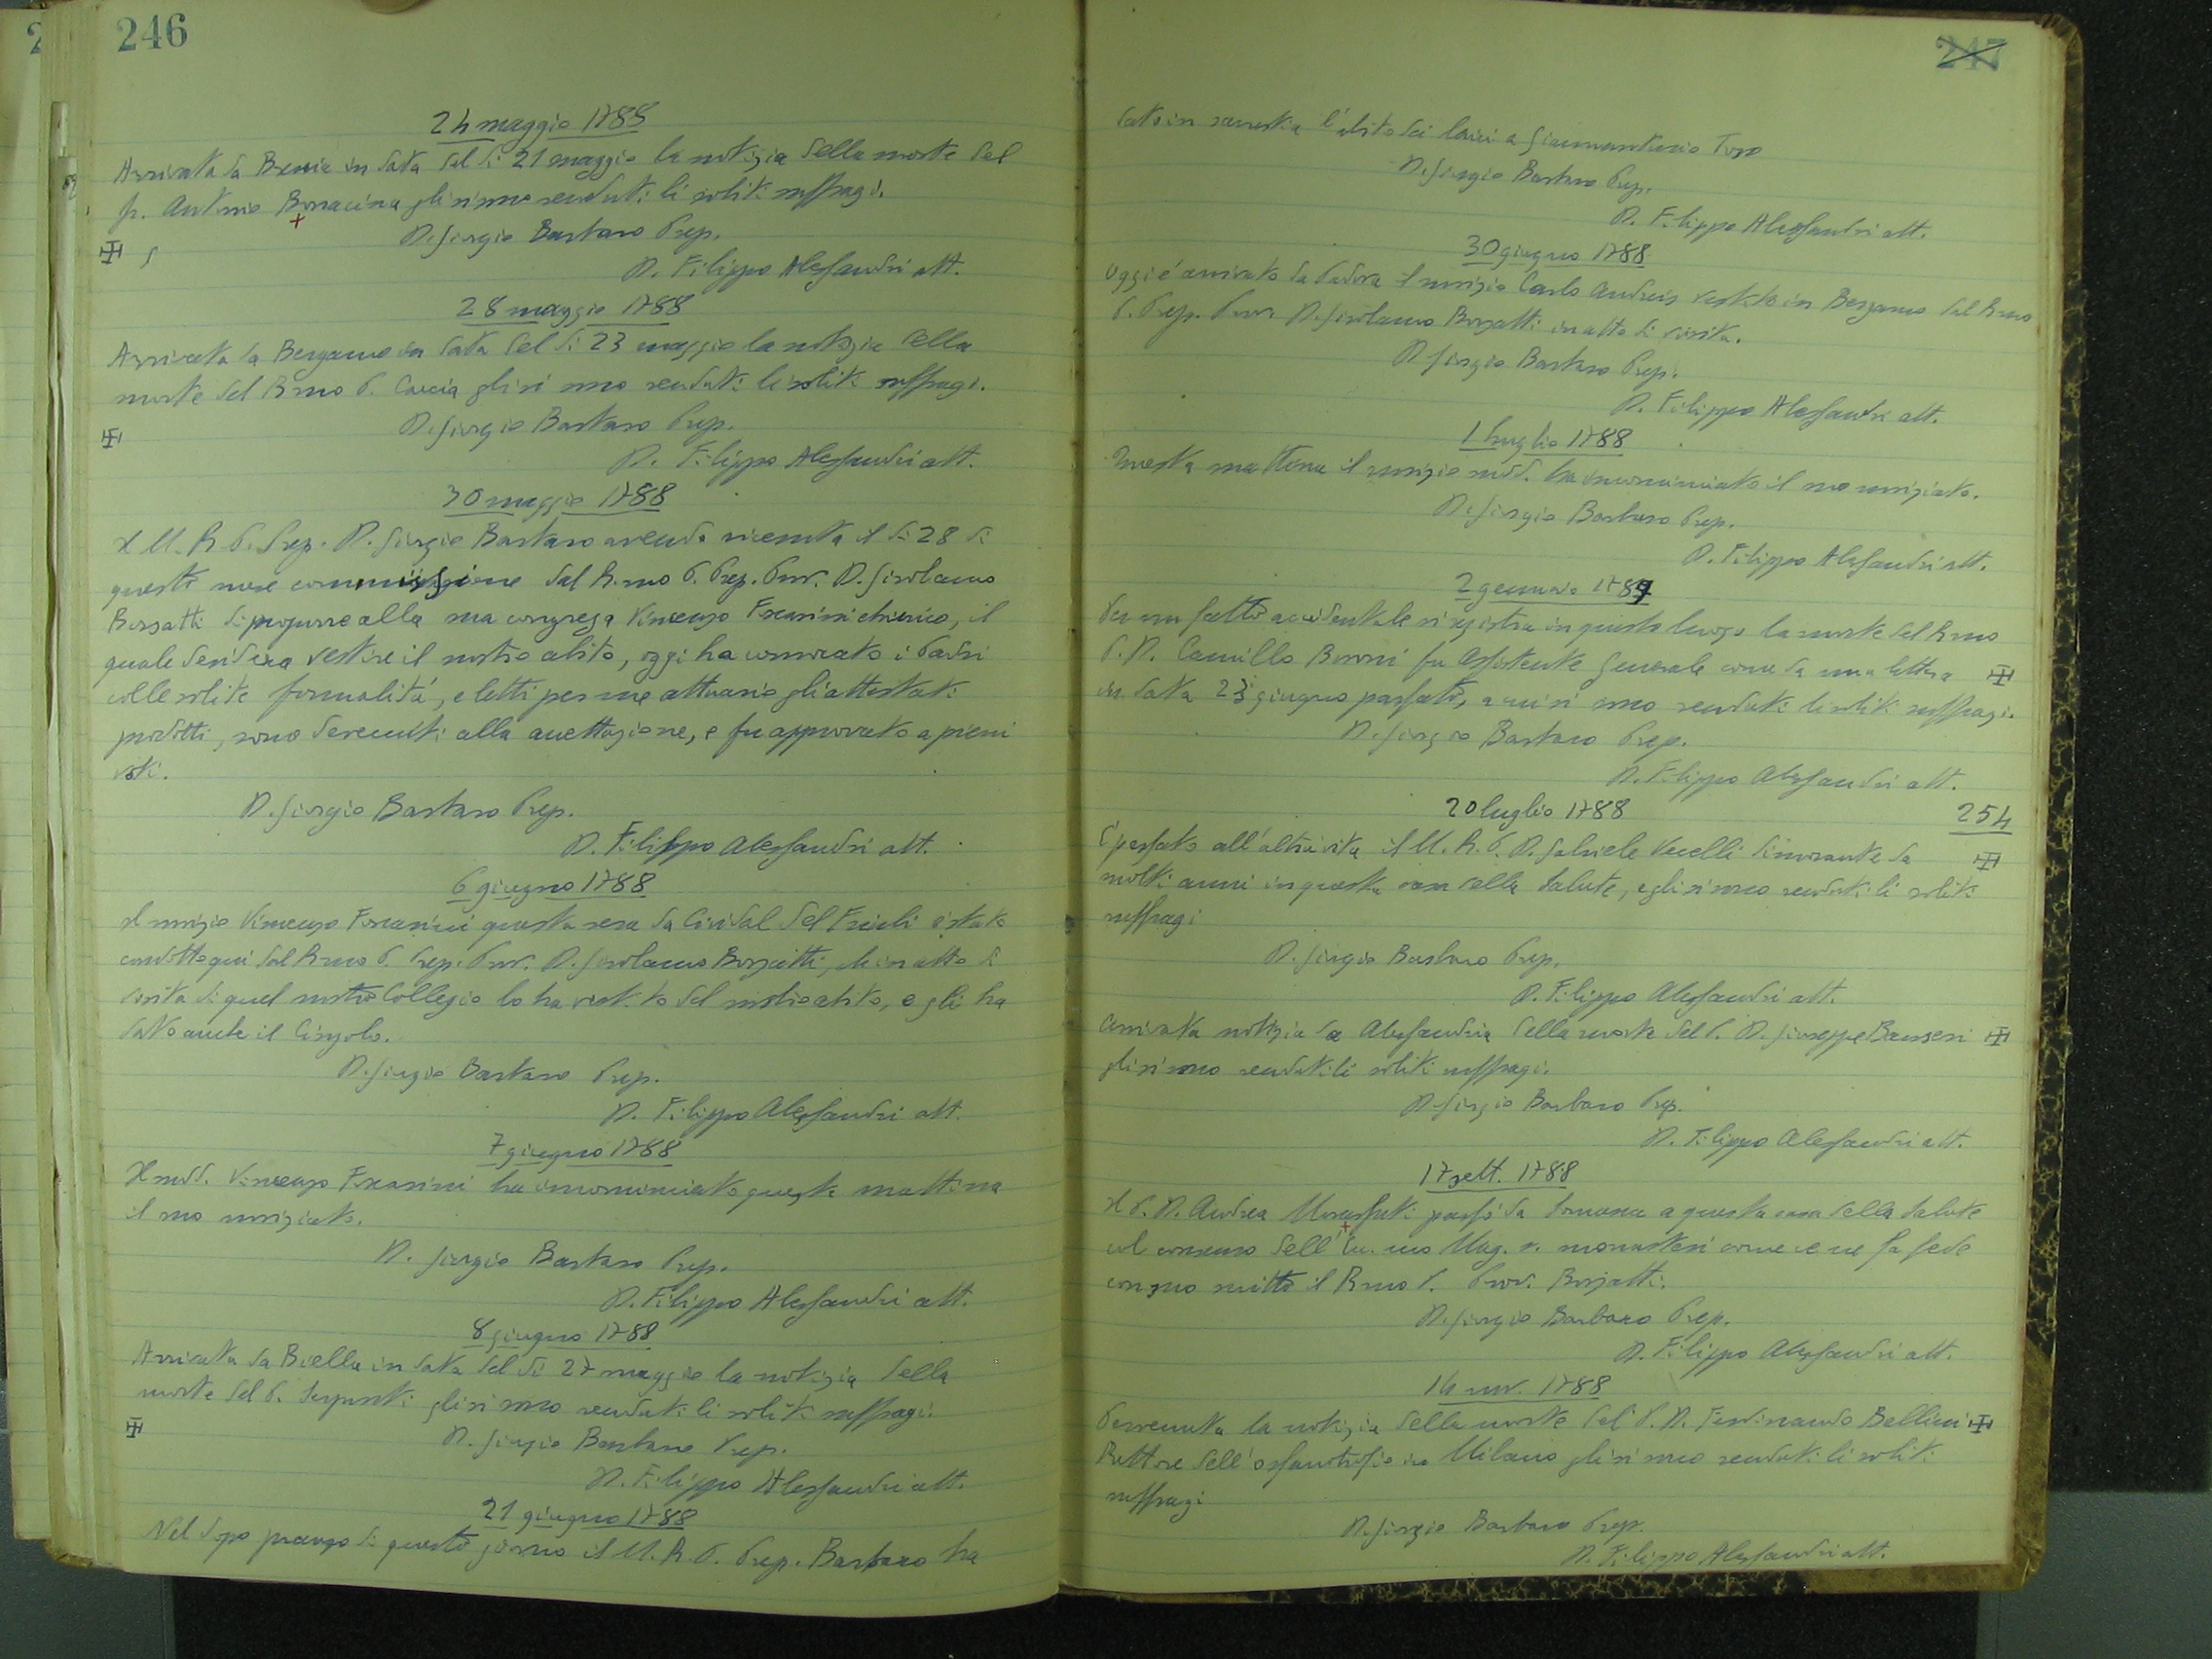 246
24 maggio 1788
Arrivata da Brescia in data del dì 21 maggio la notizia della morte del
fr. Antonio Bonacina gli si sono renduti li soliti suffragi.
D. Giorgio Barbaro Prep.
D. Filippo Alessandri att.
28 maggio 1788
Arrivata da Bergamo in data del dì 23 maggio la notizia della
morte del R.mo P. Caccia gli si sono renduti li soliti suffragi.
D. Giorgio Barbaro Prep.
D. Filippo Alessandri att.
30 maggio 1788
Il M. R. P. Prep. D. Giorgio Barbaro avendo ricevuta il dì 28 di
questo mese commissione dal R.mo P. Prep. Prov. D. Girolamo
Borsatti di proporre alla sua congrega Vincenzo Foscarini chierico, il
quale desidera vestire il nostro abito, oggi ha convocato i Padri
colle solite formalità, e letti per me attuario gli attestati
prodotti, sono devenuti alla accettazione, e fu approvato a pieni
voti.
D. Giorgio Barbaro Prep.
D. Filippo Alessandri att.
6 giugno 1788
Il novizio Vincenzo Foscarini questa sera da Cividal del Friuli è stato
condotto qui dal R.mo P. Prep. Prov. D. Girolamo Borsatti, che in atto di
visita di quel nostro Collegio lo ha vestito del nostro abito, e gli ha
dato anche il Cingolo.
D. Giorgio Barbaro Prep.
D. Filippo Alessandri att.
7 giugno 1788
Il sudd. Vincenzo Foscarini ha incominciato questa mattina
il suo noviziato.
D. Giorgio Barbaro Prep.
D. Filippo Alessandri att.
8 giugno 1788
Arrivata da Biella in data del dì 27 maggio la notizia della
morte del P. Serponti gli si sono renduti li soliti suffragi.
D. Giorgio Barbaro Prep.
D. Filippo Alessandri att.
21 giugno 1788
Nel dopo pranzo di questo giorno il M. R. P. Prep. Barbaro ha
247
dato in sacrestia l'abito dei laici a Giannantonio Toso
D. Giorgio Barbaro Prep.
D. Filippo Alessandri att.
30 giugno 1788
Oggi è arrivato da Padova il novizio Carlo Andreis vestito in Bergamo dal R.mo
P. Prep. Prov. D. Girolamo Borsatti in atto di visita.
D. Giorgio Barbaro Prep.
D. Filippo Alessandri att.
1 luglio 1788
Questa mattina il novizio sudd. ha incominciato il suo noviziato.
D. Giorgio Barbaro Prep.
D. Filippo Alessandri att.
2 gennaio 1789
Per un fatto accidentale si registra in questo luogo la morte del R.mo
P. D. Camillo Bovoni fu Assistente Generale come da una lettera
in data 23 giugno passato, a cui si sono renduti li soliti suffragi.
D. Giorgio Barbaro Prep.
D. Filippo Alessandri att.
20 luglio 1788
254
È passato all'altra vita il M. R. P. D. Gabriele Vecelli dimorante da
molti anni in questa casa della Salute, e gli si sono renduti li soliti
suffragi
D. Giorgio Barbaro Prep.
D. Filippo Alessandri att.
Arrivata notizia da Alessandria della morte del P. D. Giuseppe Bausseri
gli si sono renduti li soliti suffragi.
D. Giorgio Barbaro Prep.
D. Filippo Alessandri att.
17 sett. 1788
Il P. D. Andrea passò da Somasca a questa casa della Salute
col consenso dell' Ecc. mo Mag. s. monasteri come ce ne fa fede
con suo scritto il R.mo P. Prov. Borsatti.
D. Giorgio Barbaro Prep.
D. Filippo Alessandri att.
14 nov. 1788
Pervenuta la notizia della morte del P. D. Ferdinando Bellini
Rettore dell'orfanotrofio in Milano gli si sono renduti li soliti
suffragi
D. Giorgio Barbaro Prep.
D. Filippo Alessandri att.